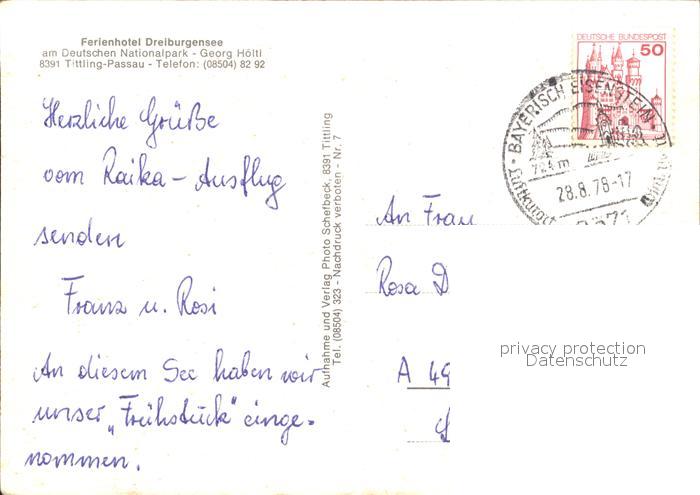 Ferienhotel Dreiburgensee
am Deutschen Nationalpark - Georg Höltl
8391 Tittling-Passau - Telefon: (08504) 82 92
Herzliche Grüße
vom Raika - Ausflug
senden
Franz u. Rosi
An diesem See haben wir
unser „Frühstück" einge-
nommen.
Aufnahme und Verlag Photo Schefbeck, 8391 Tittling
Tel. (08504) 323 - Nachdruck verboten - Nr. 7
DEUTSCHE BUNDESPOST
50
BAYERISCH EISENSTEIN
724 m
28.8.78-17
Luftkurort
An Frau
Rosa D
A 49
privacy protection
Datenschutz